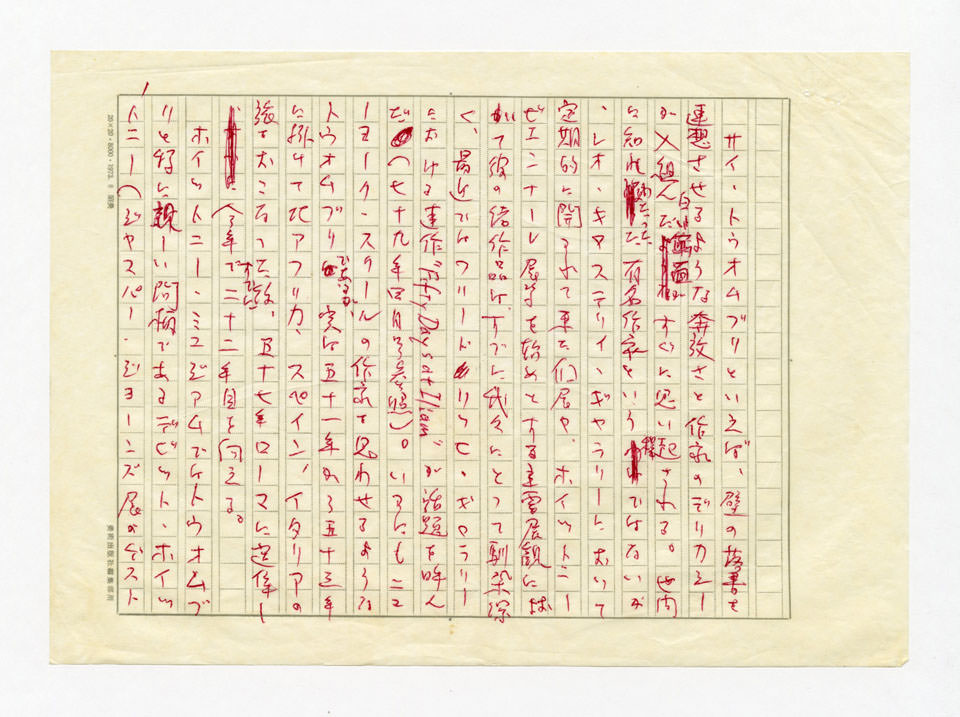 サイ・トゥオムブリといえば、壁の落書を
連想させるような奔放さと作家のデリカシー
が入組んだ白い画面がすぐに思い起される。世間
に知れわたった有名作家という程ではないが
、レオ・キャステリイ・ギャラリーにおいて
定期的に開られて来た個展や、ホイットニー
ビエンナーレ展等を始めとする主要展観に於
いて彼の諸作品は、すでに我々にとって馴染深
く、最近ではフリードリッヒ・ギャラリー
における連作"Fifty Days at Iliam"が話題を呼ん
だ(七十九年四月号参照)。いかにもニュ
ーヨーク・スクールの作家と思わせるような
トゥオムブリであるが、実は五十一年から五十三年
に掛けて北アフリカ、スペイン、イタリアの
旅をおこなった故、五十七年ローマに定住し
すでに今年で二十二年目を向える。
ホイットニー・ミュジアムではトゥオムブ
リと特に親しい間柄であるデビット・ホイッ
トニー(ジャスパー・ジョーンズ展のゲスト
20×20・8000・1973.
美術出版社編集部用